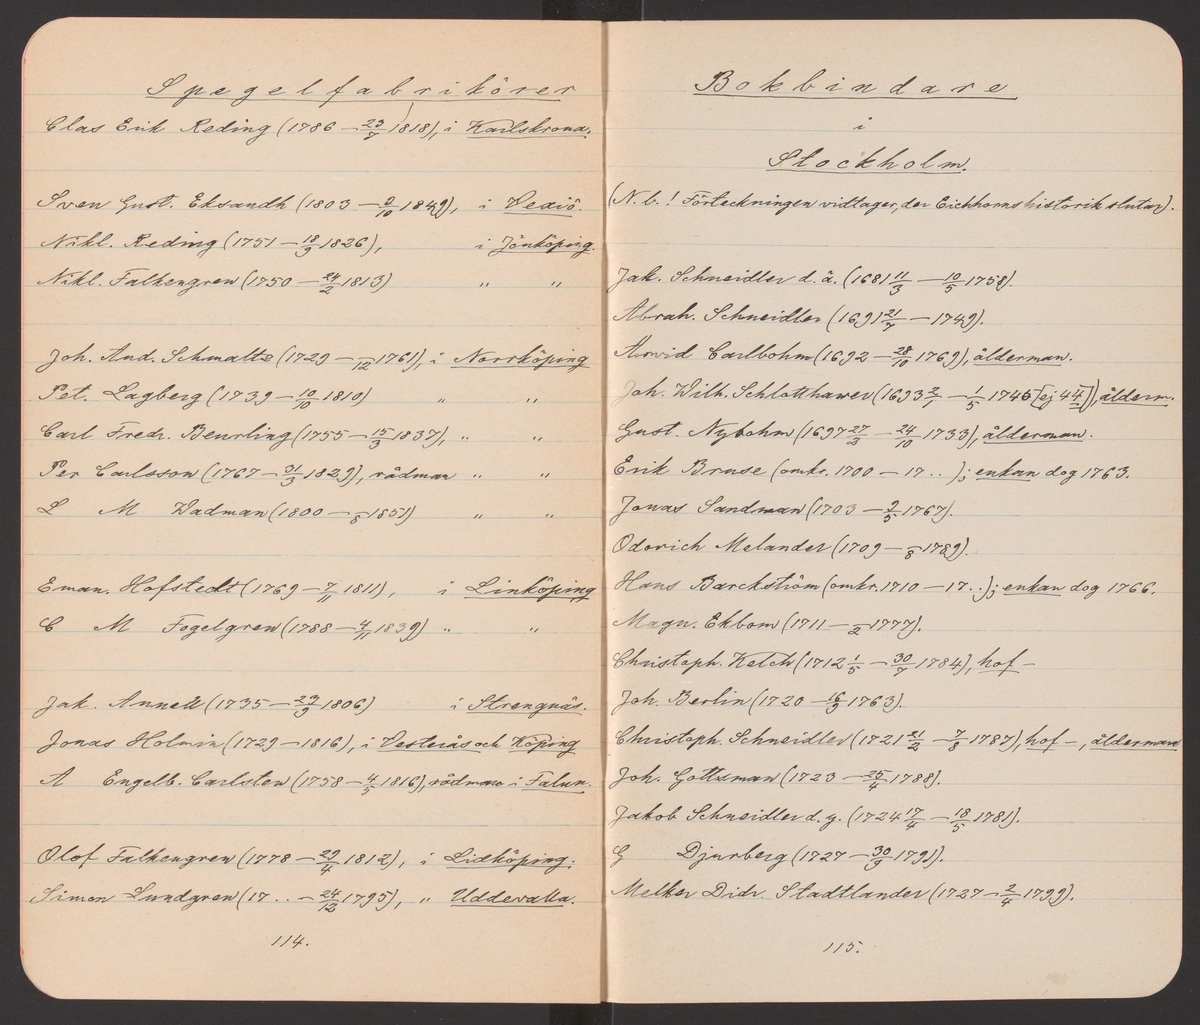 Spegelfabrikörer
Clas Erik Reding (1786 — 23/7 1818), i Karlskrona.
Sven Gust. Eksandh (1803 — 3/10 1849), i Vexiö.
Nikl. Reding (1751 — 18/9 1826), i Jönköping.
Nikl. Falkengren (1750 — 24/2 1813) " "
Joh. And. Schmaltz (1729 — /12 1761), i Norrköping
Pet. Lagberg (1739 — 10/10 1810) " "
Carl Fredr. Beurling (1755 — 15/3 1837), " "
Per Carlsson (1767 — 31/3 1829), rådman " "
L M Wadman (1800 — /8 1851) " "
Eman. Hofstedt (1769 — 7/11 1811), i Linköping
C M Fogelgren (1788 — 4/11 1839) " "
Jak. Annell (1735 — 23/9 1806) i Strengnäs.
Jonas Holmin (1729 — 1816), i Vesterås och Köping
A Engelb. Carlsten (1758 — 4/5 1816), rådman i Falun.
Olof Falkengren (1778 — 29/4 1812), i Lidköping.
Simon Lundgren (17 . . — 24/12 1795), " Uddevalla.
114.
Bokbindare
i
Stockholm.
(N. b.! Förteckningen vidtager, der Eichhorns historik slutar).
Jak. Schneidler d. ä. (1681 11/3 — 10/5 1758).
Abrah. Schneidler (1691 21/7 — 1749).
Arvid Carlbohm (1692 — 28/10 1769), ålderman.
Joh. Wilh. Schlotthawer (1693 2/1 — 1/5 1745 [ej 44]), ålderm.
Gust. Nybohm (1697 27/2 — 24/10 1733), ålderman.
Erik Bruse (omkr. 1700 — 17 . . ); enkan dog 1763.
Jonas Sandman (1703 — 2/5 1767).
Odorich Melander (1709 — /8 1789).
Hans Barckström (omkr. 1710 — 17 . . ); enkan dog 1766.
Magn. Ekbom (1711 — /2 1777).
Christoph. Ketch (1712 1/5 — 30/7 1784), hof —
Joh. Berlin (1720 — 16/9 1763).
Christoph. Schneidler (1721 21/2 — 7/8 1787), hof —, ålderman
Joh. Gottsman (1723 — 25/4 1788).
Jakob Schneidler d. y. (1724 17/4 — 18/5 1781).
G Djurberg (1727 — 30/9 1791).
Melker Didr. Stadtlander (1727 — 2/4 1799).
115.